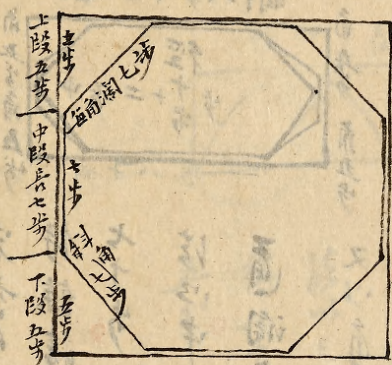 上段五步
中段長七步
下段五步
五步
七步
五步
每角濶七步
斜角七步